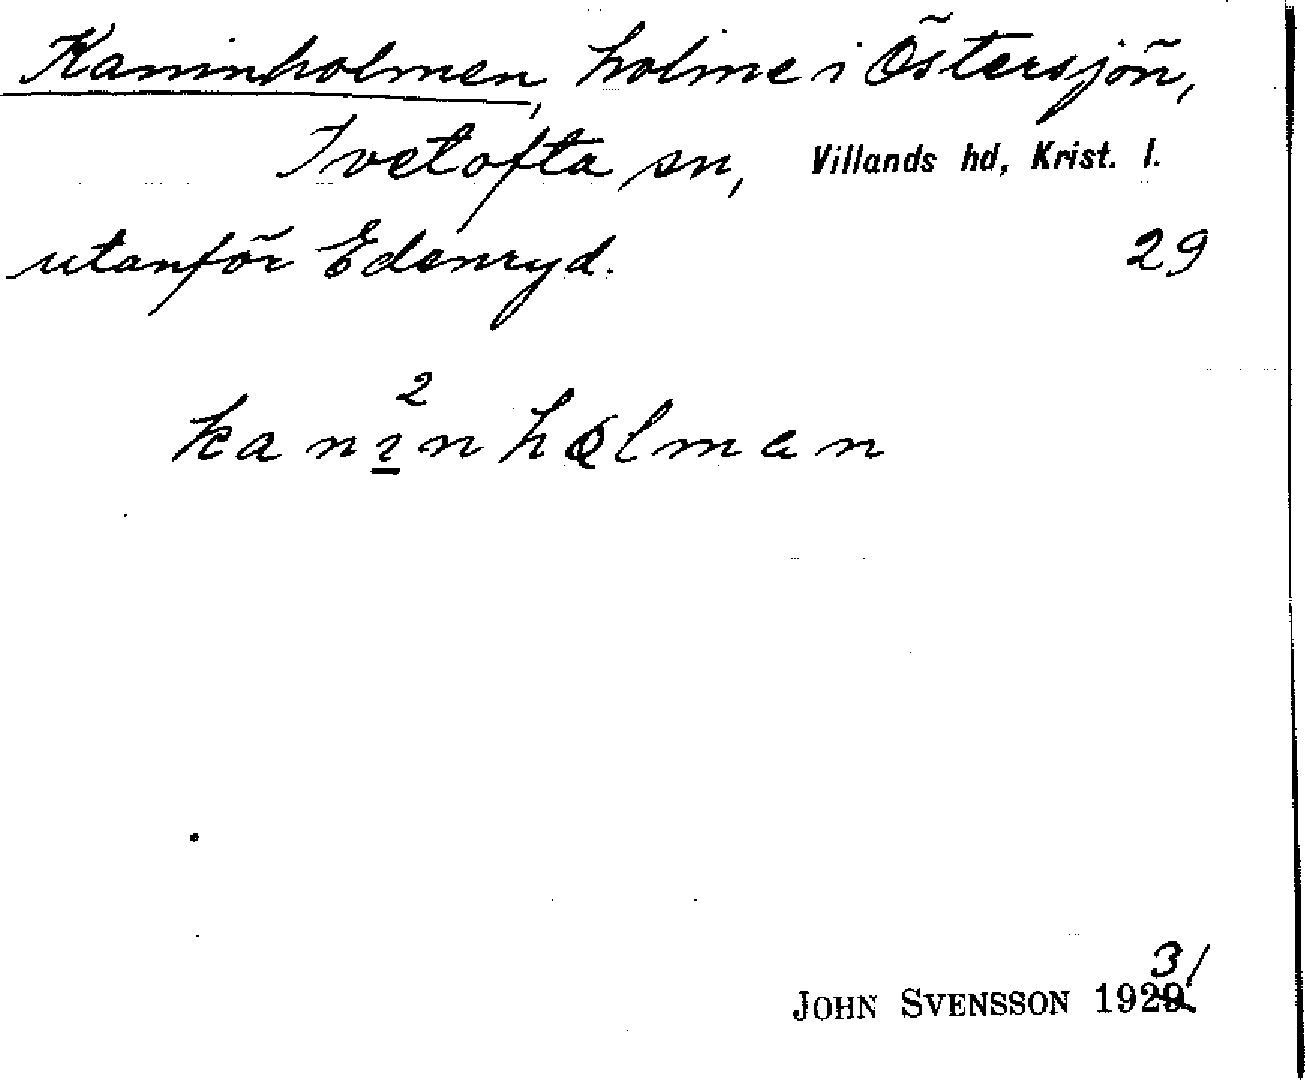 Kaninholmen, holme i Östersjön,
Ivetofta sn, Villands hd, Krist. l.
utanför Edenryd. 29
2
kaninholmen
31
JOHN SVENSSON 1929.